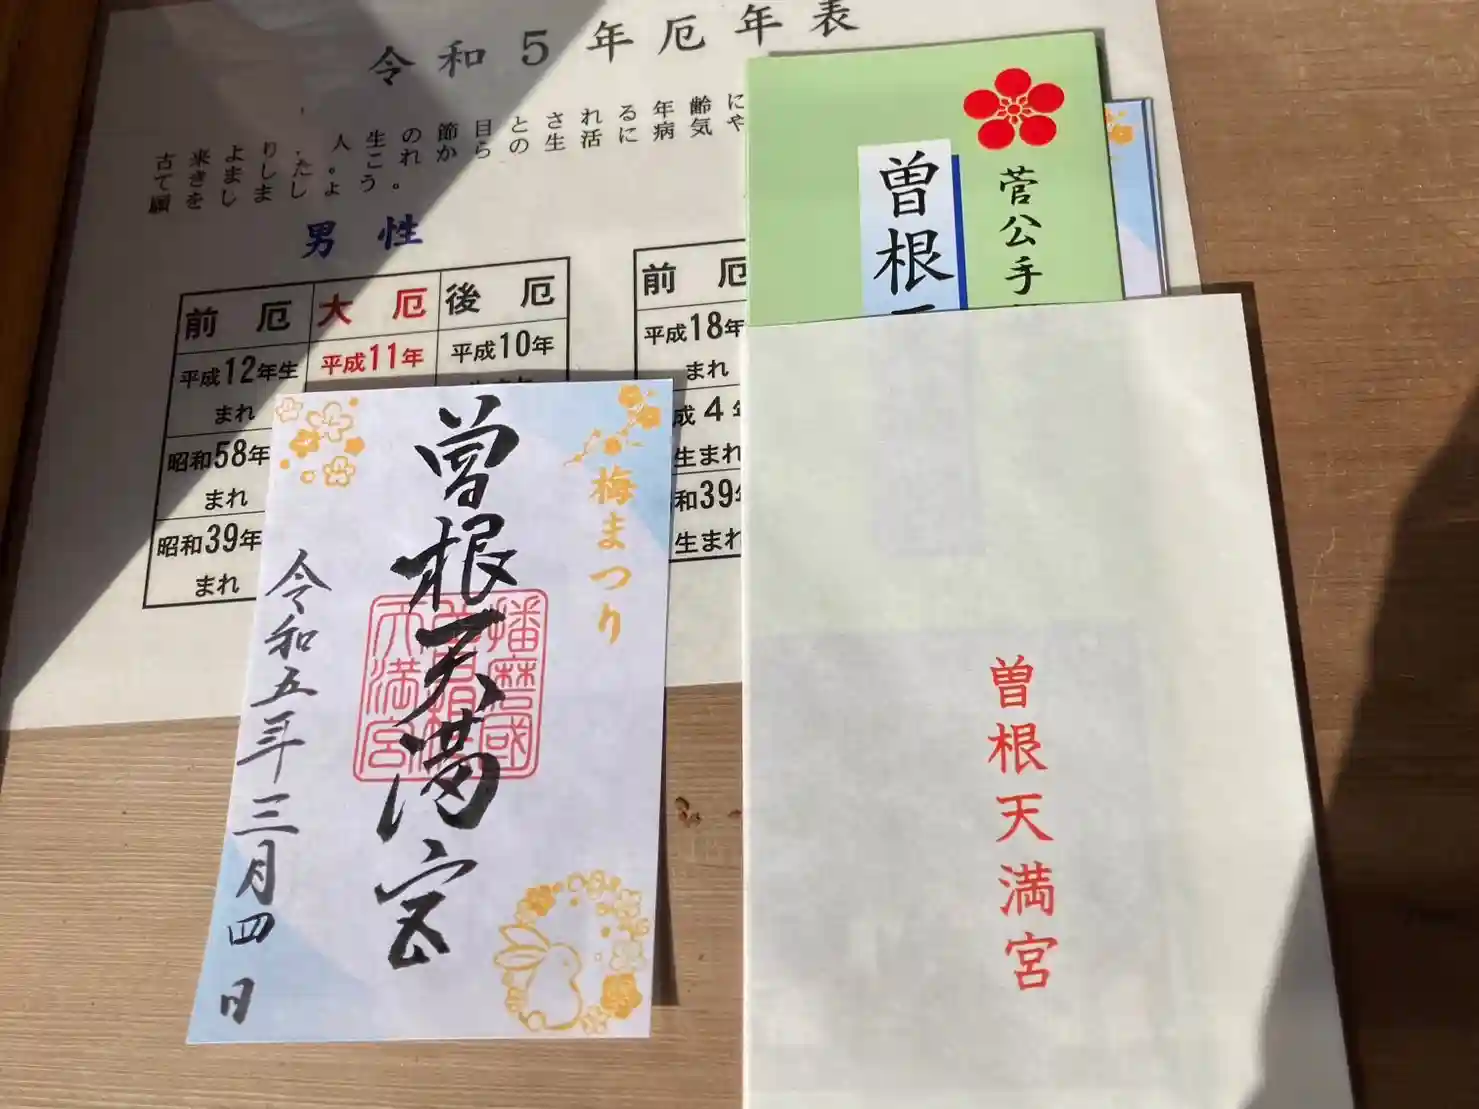 令和5年厄年表
古来より、人生の節目とされる年齢に
てきました。これからの生活に病気や
願をしましょう。
男性
前厄 大厄 後厄
平成12年生 平成11年 平成10年
まれ
昭和58年
まれ
昭和39年
まれ
前厄
平成18年
まれ
成4年
生まれ
和39年
生まれ
菅公手
曽根天
梅まつり
曽根天満宮
播磨國
曽根
天満宮
令和五年三月四日
曽根天満宮